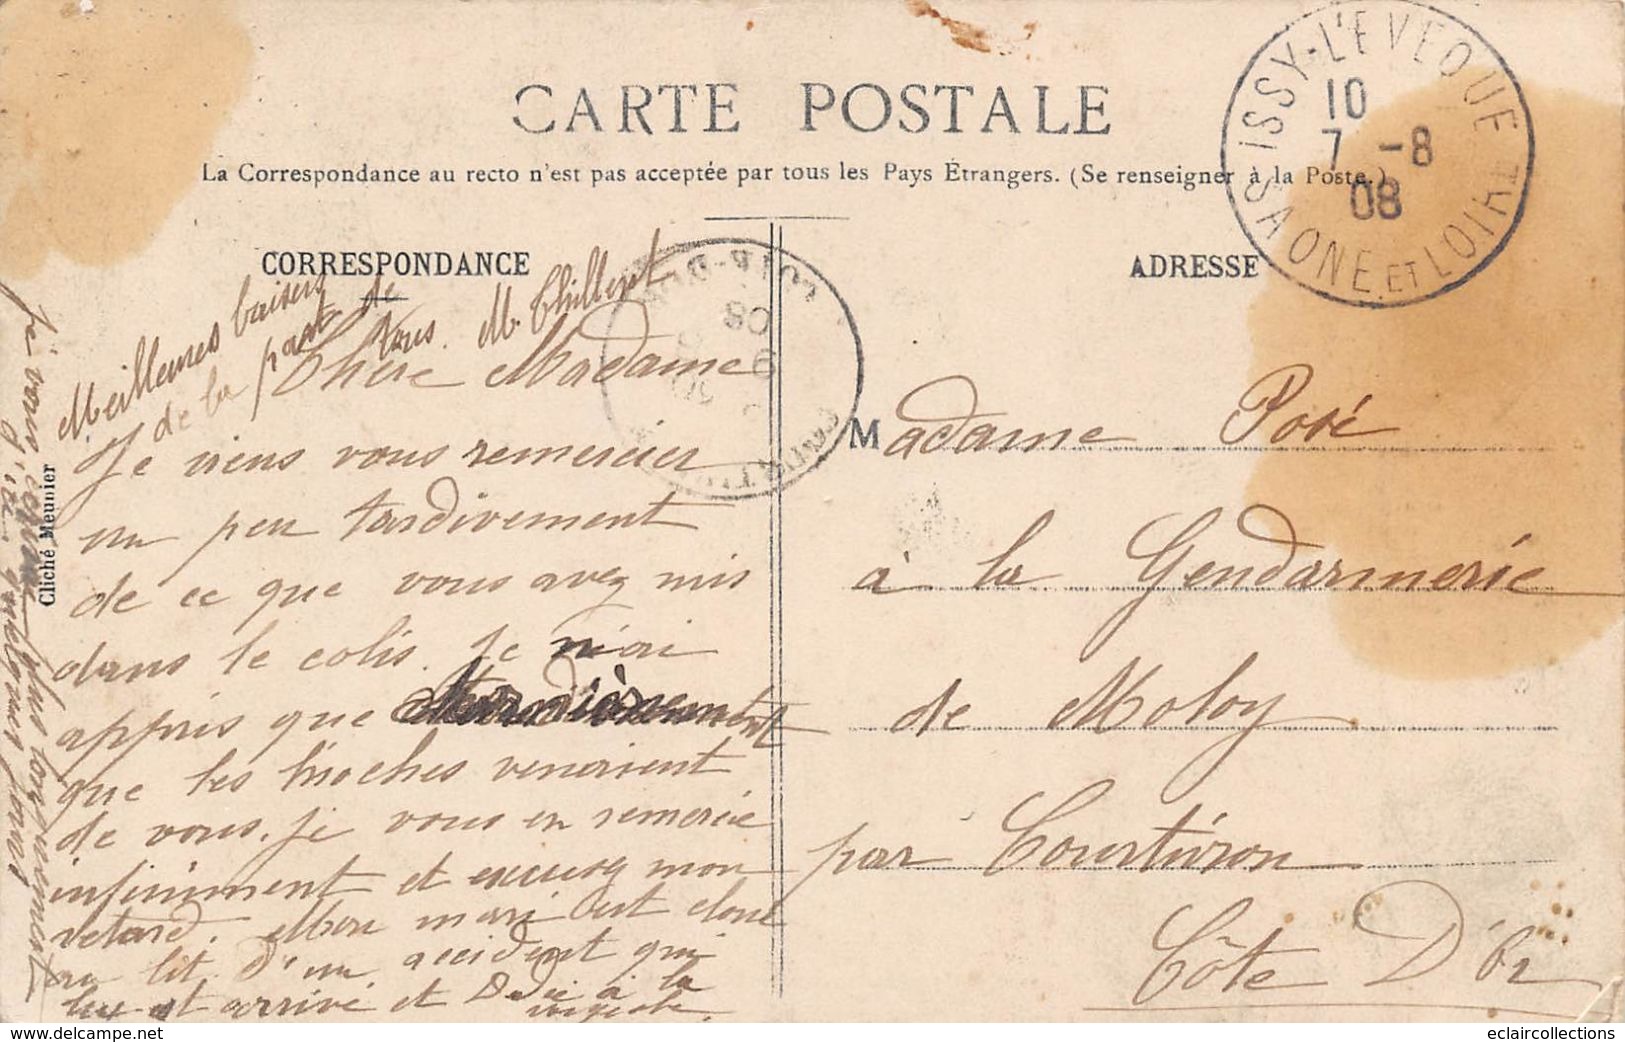 CARTE POSTALE
La Correspondance au recto n'est pas acceptée par tous les Pays Étrangers. (Se renseigner à la Poste.)
ISSY-L'EVEQUE
10
7 -8
08
SAONE ET LOIRE
CORRESPONDANCE
ADRESSE
Meilleures baisers
de la part de
tous. M. Thillent
Chère Madame
Je viens vous remercier
un peu tardivement
de ce que vous avez mis
dans le colis. Je n'ai
appris que
que les brioches venaient
de vous. Je vous en remercie
infiniment et excusez mon
retard. Mon mari est cloué
au lit d'un accident qui
lui est arrivé et Dédé à la
Je vous écrirai plus longuement
d'ici quelques jours
Cliché Meunier
Madame Poté
à la Gendarmerie
de Moloy
par Courtivron
Côte D'Or
www.delcampe.net
eclaircollections